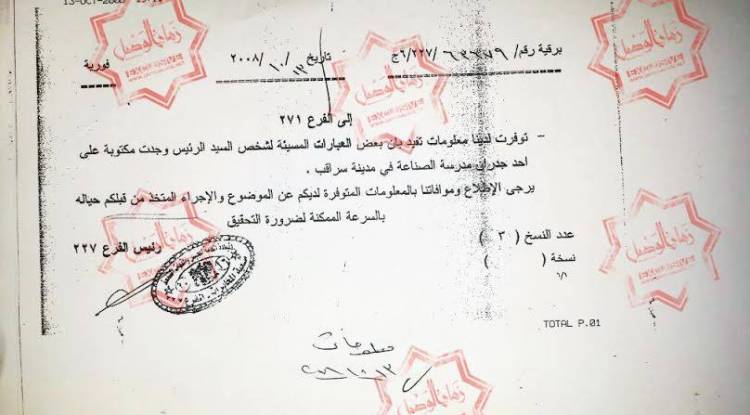 13-OCT-2008
برقية رقم/ ٦٣٣٧٩ /٢٢٧/٦ج تاريخ ١٣/١٠/٢٠٠٨ فورية
إلى الفرع ٢٧١
– توفرت لدينا معلومات تفيد بان بعض العبارات المسيئة لشخص السيد الرئيس وجدت مكتوبة على
احد جدران مدرسة الصناعة في مدينة سراقب .
يرجى الإطلاع وموافاتنا بالمعلومات المتوفرة لديكم عن الموضوع والإجراء المتخذ من قبلكم حياله
بالسرعة الممكنة لضرورة التحقيق
عدد النسخ ( ٣ )
رئيس الفرع ٢٢٧
نسخة ( )
TOTAL P.01
معلومات
زمان الوصل